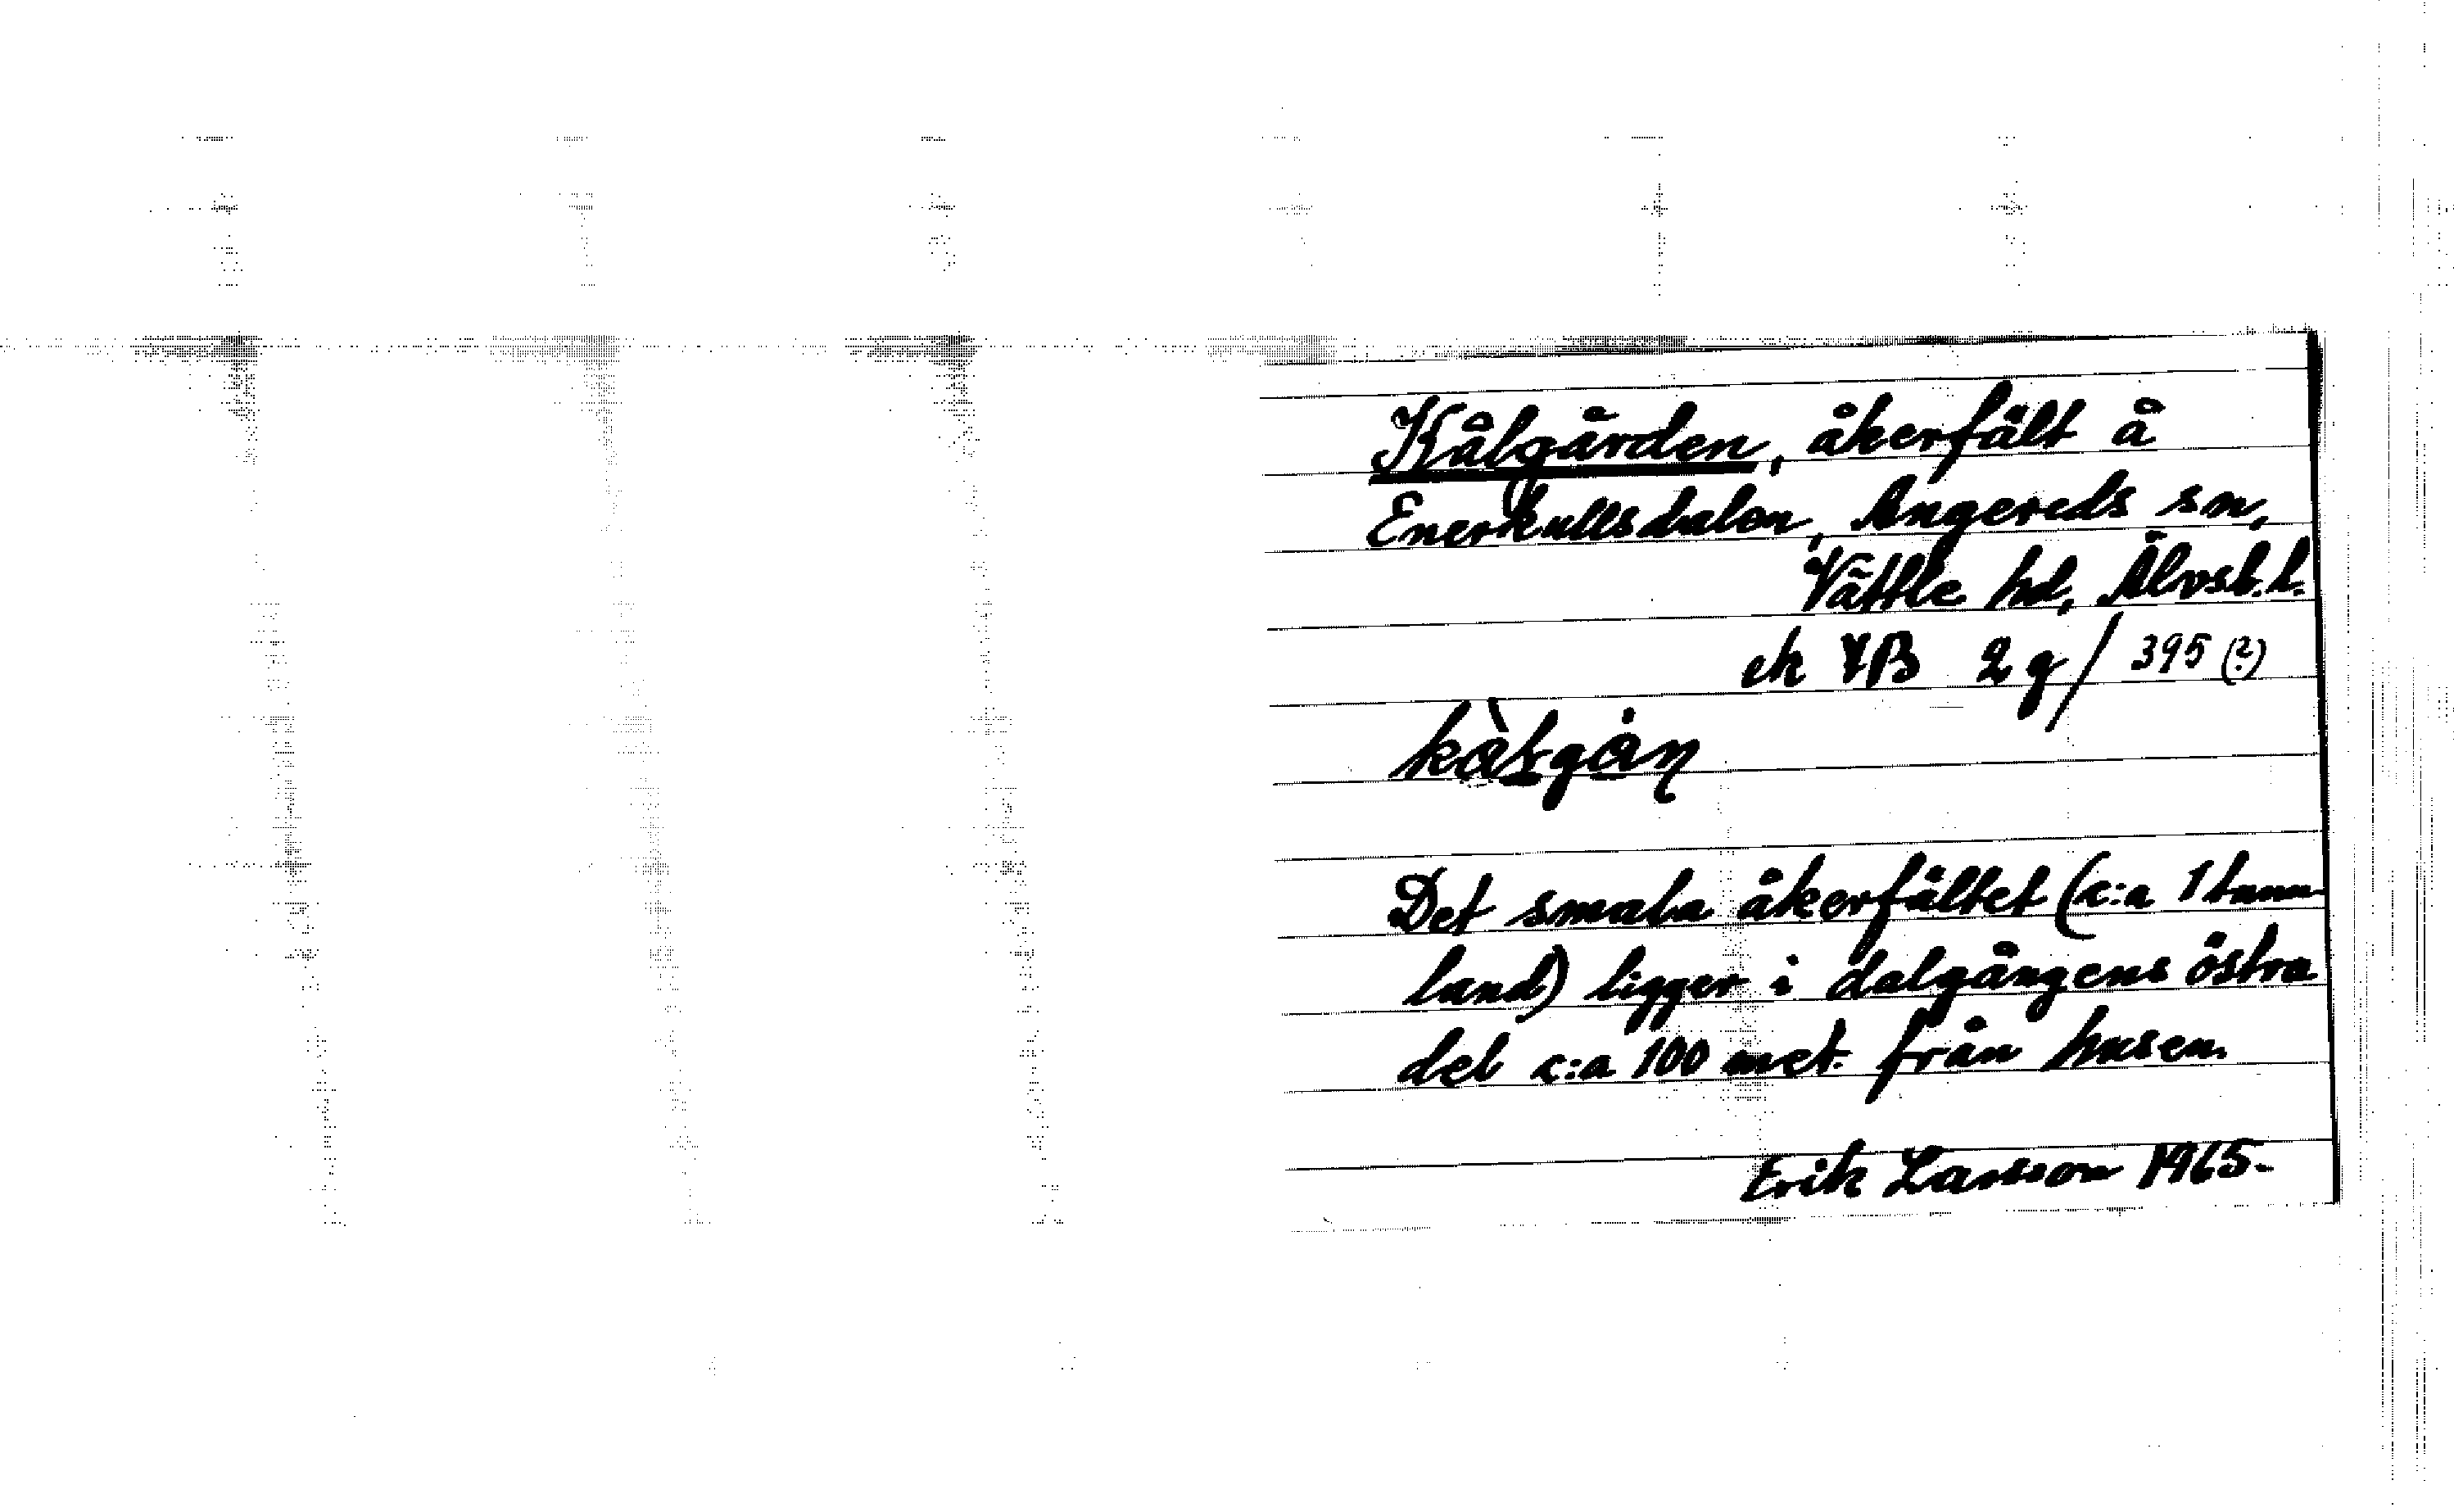 Kålgården, åkerfält å
Enerkullsdalen, Angereds sn,
Vättle hd, Älvsb.l.
ek 7B 2 g / 395 (?)
Det smala åkerfältet (c:a 1 tunn-
land) ligger i dalgångens östra
del c:a 100 met. från husen.
Erik Larsson 1965.